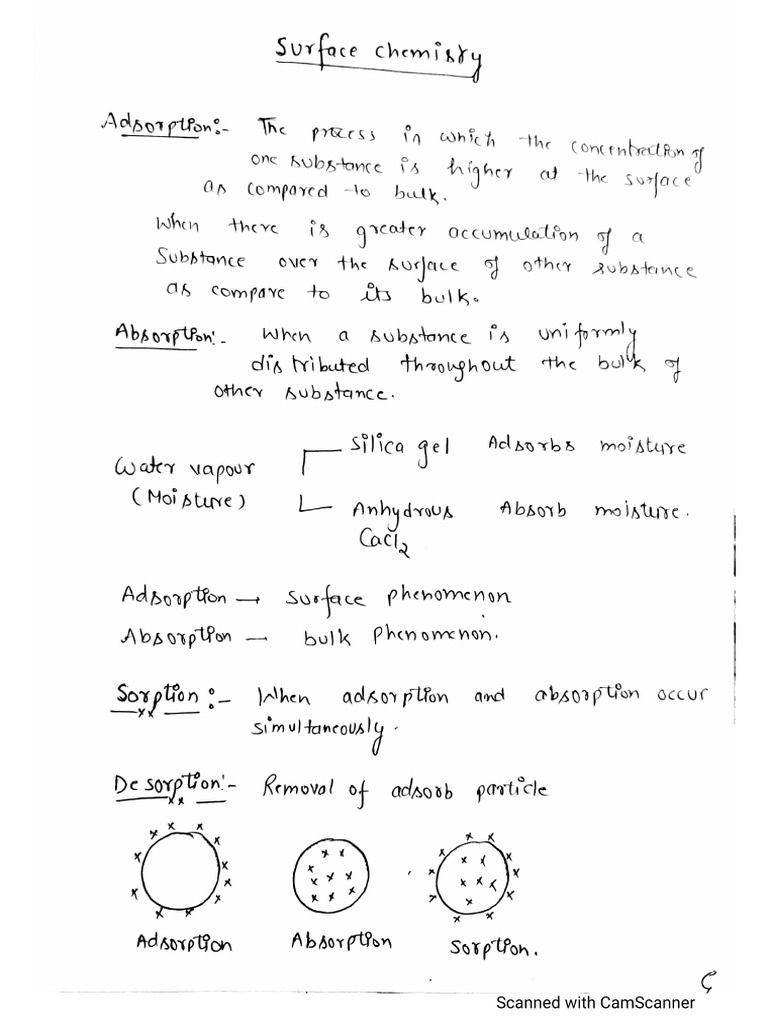 Surface chemistry
Adsorption:- The process in which the concentration of
one substance is higher at the surface
as compared to bulk.
When there is greater accumulation of a
Substance over the surface of other substance
as compare to its bulk.
Absorption:- When a substance is uniformly
distributed throughout the bulk of
other substance.
Silica gel Adsorbs moisture
Water vapour
(Moisture)
Anhydrous Absorb moisture.
CaCl2
Adsorption → surface phenomenon
Absorption — bulk phenomenon.
Sorption:- When adsorption and absorption occur
simultaneously.
Desorption:- Removal of adsorb particle
Adsorption Absorption Sorption.
Scanned with CamScanner